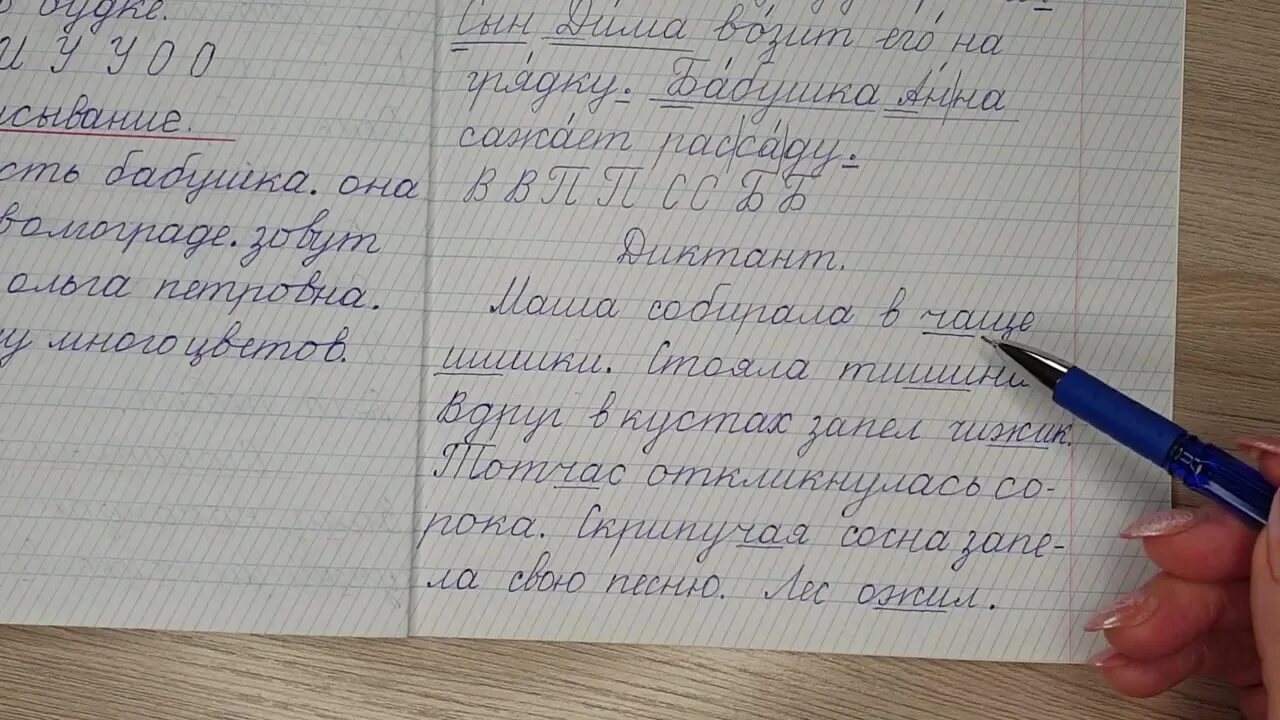 будке.
И У У О О
исывание.
сть бабушка. она
волгограде. зовут
ольга петровна.
у много цветов.
Сын Дима возит его на
грядку. Бабушка Анна
сажает рассаду.
В В П П С С Б Б
Диктант.
Маша собирала в чаще
шишки. Стояла тишина
Вдруг в кустах запел чижик.
Тотчас откликнулась со-
рока. Скрипучая сосна запе-
ла свою песню. Лес ожил.